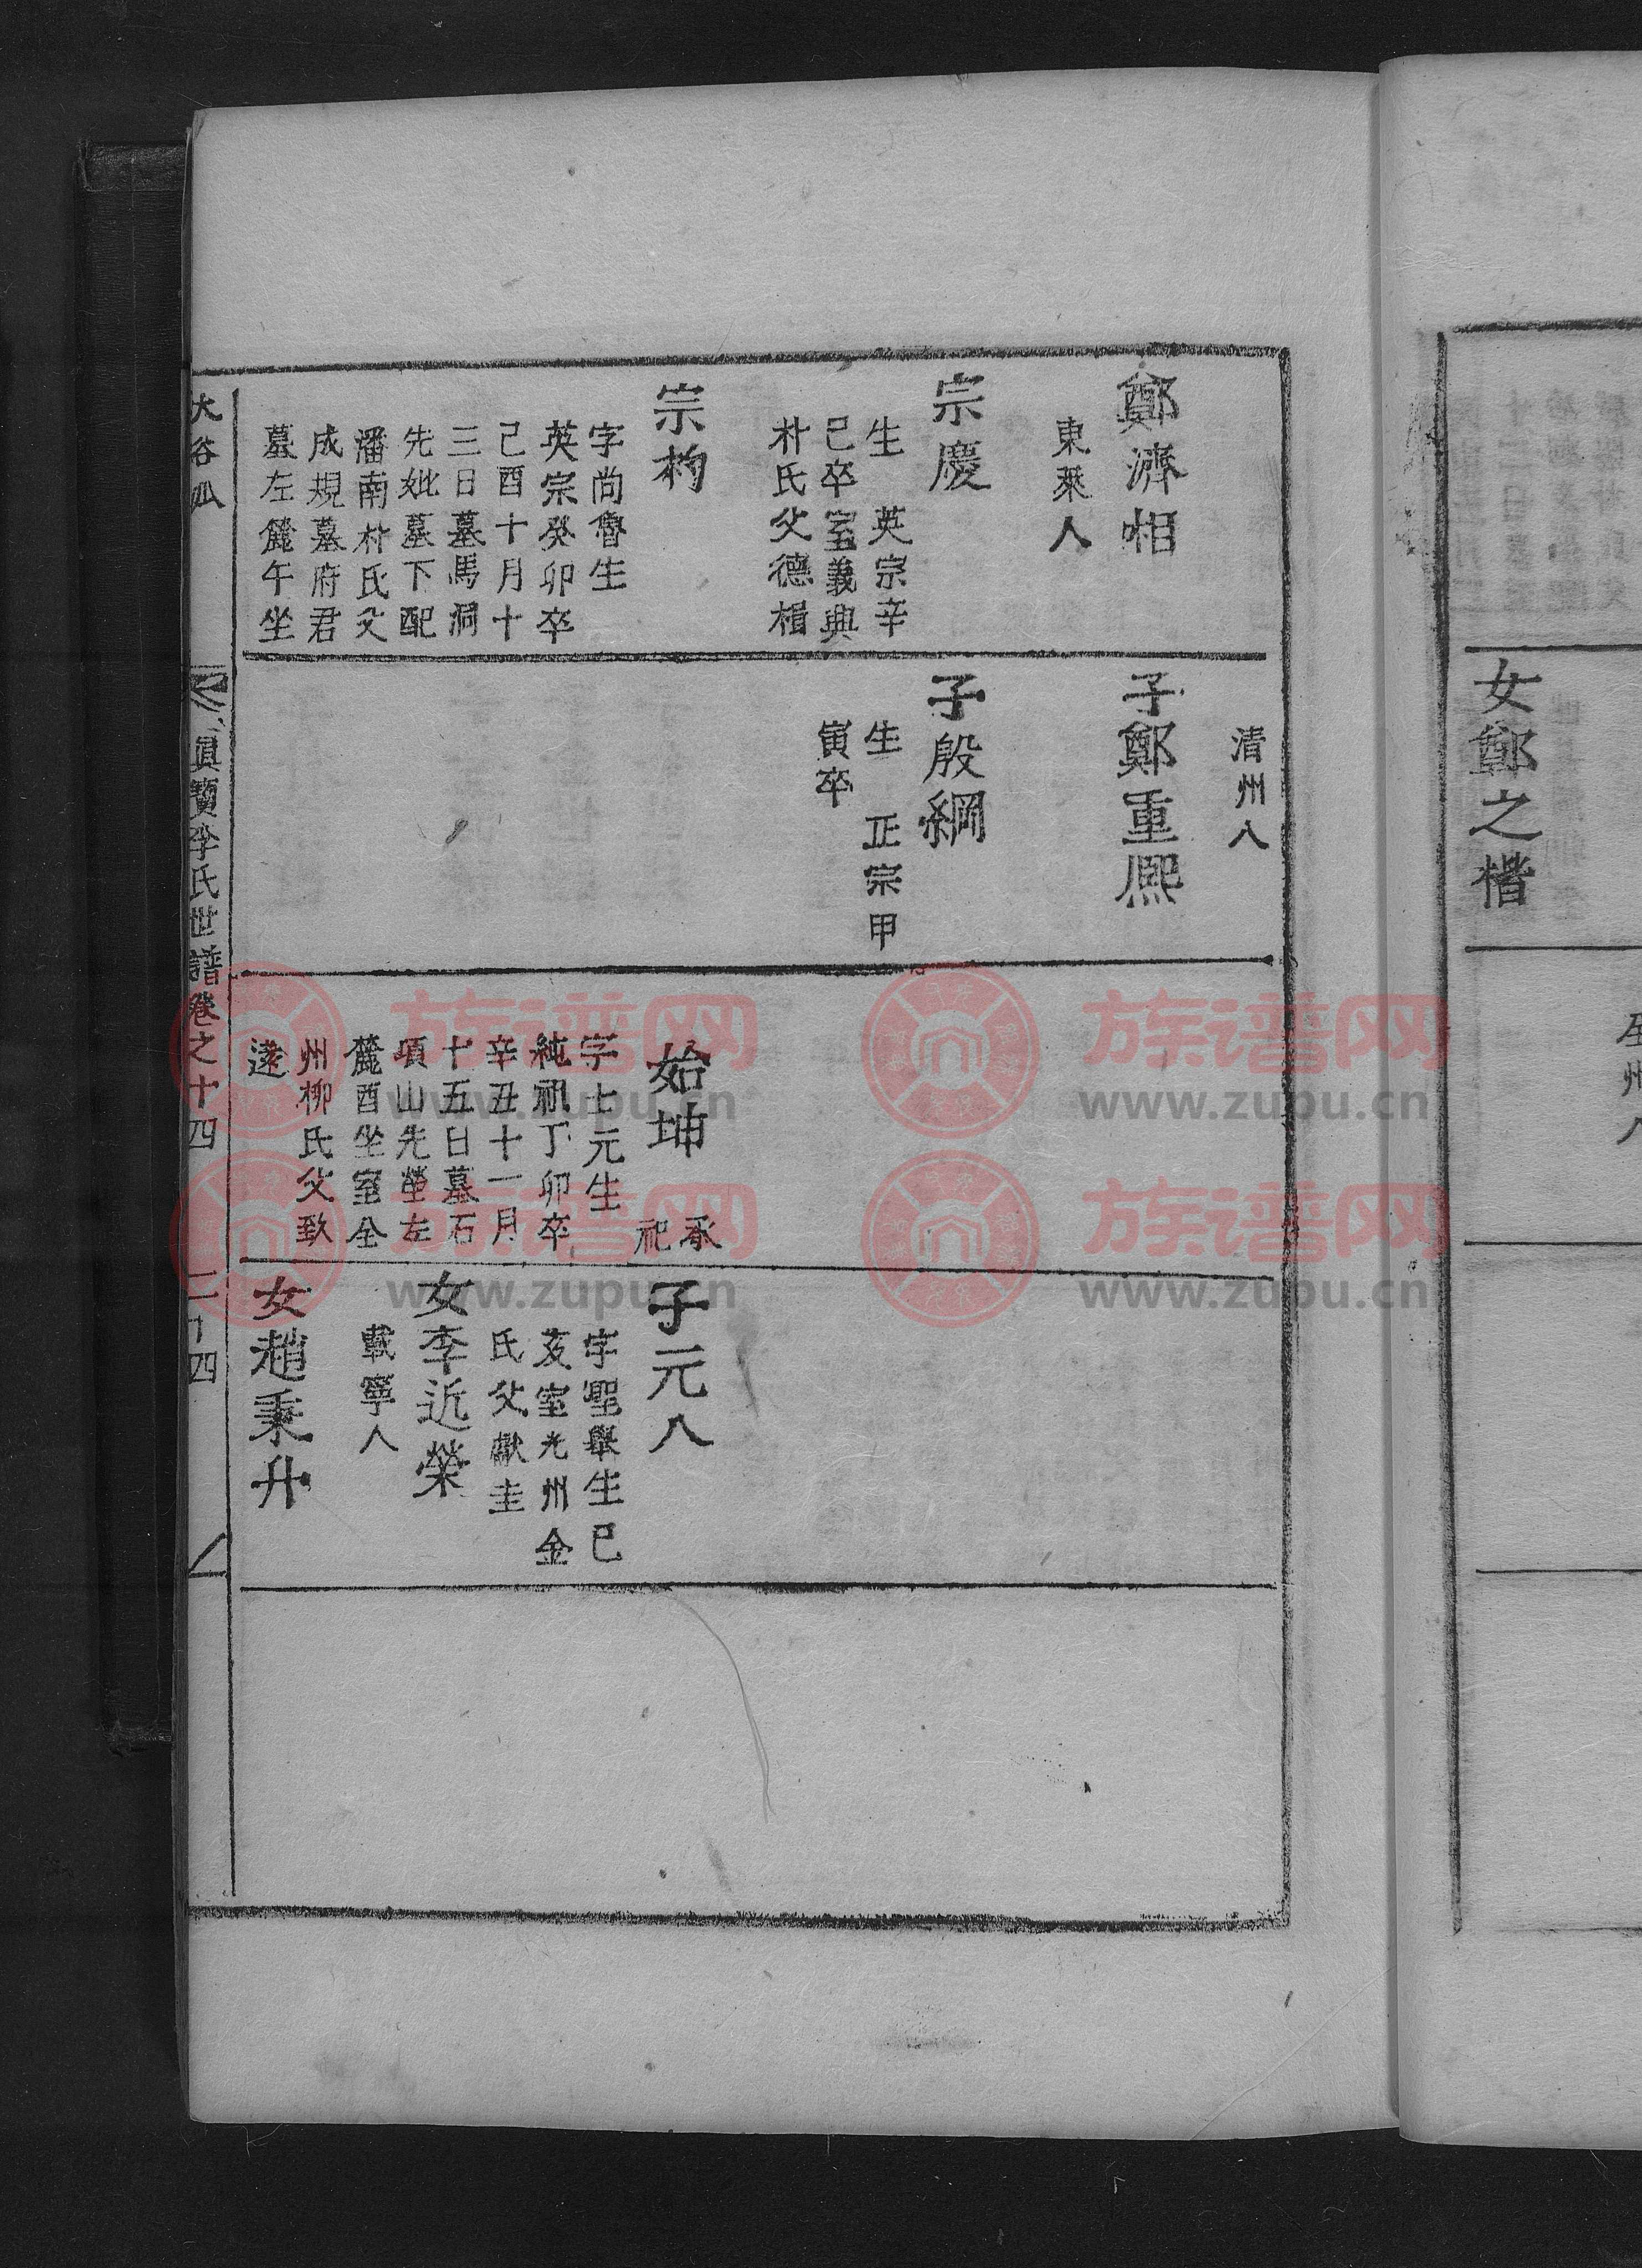 女鄭之楷
州人
鄭濟相
東萊人
宗慶
生 英宗辛
巳卒室義興
朴氏父德楫
宗杓
字尚魯生
英宗癸卯卒
己酉十月十
三日墓馬洞
先妣墓下配
潘南朴氏父
成規墓府君
墓左麓午坐
清州人
子鄭重熙
子殷綱
生 正宗甲
寅卒
始坤
承
祀
字士元生
純祖丁卯卒
辛丑十一月
十五日墓石
項山先塋左
麓酉坐室全
州柳氏父致
遠
子元八
字聖舉生己
亥室光州金
氏父獻圭
女李近榮
載寧人
女趙秉升
大谷派
真寶李氏世譜卷之十四
二十四
族谱网
www.zupu.cn
族谱网
www.zupu.cn
族谱网
www.zupu.cn
族谱网
www.zupu.cn